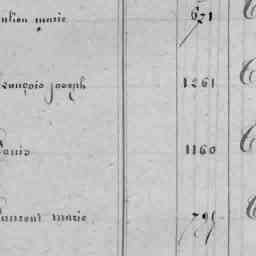 marie 621
françois joseph 1261
Louis 1160
Laurent marie 795